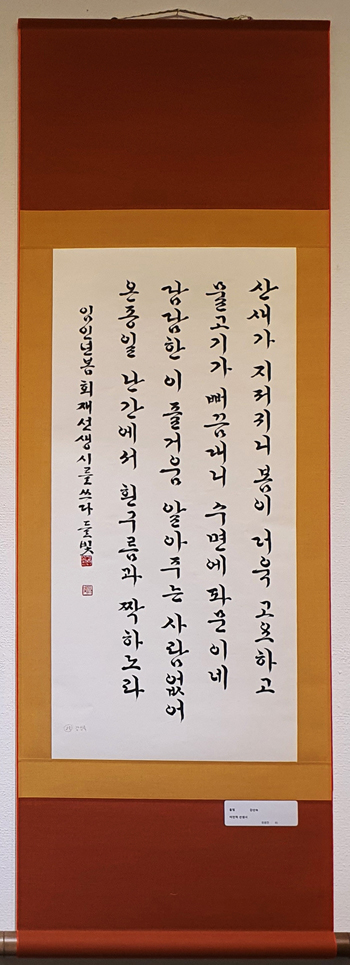 산새가 지저귀니 봄이 더욱 고요하고
물고기가 뻐끔대니 수면에 파문이네
담담한 이 즐거움 알아주는 사람없어
온종일 난간에서 흰구름과 짝하노라
임인년봄 회재선생시를쓰다 들빛